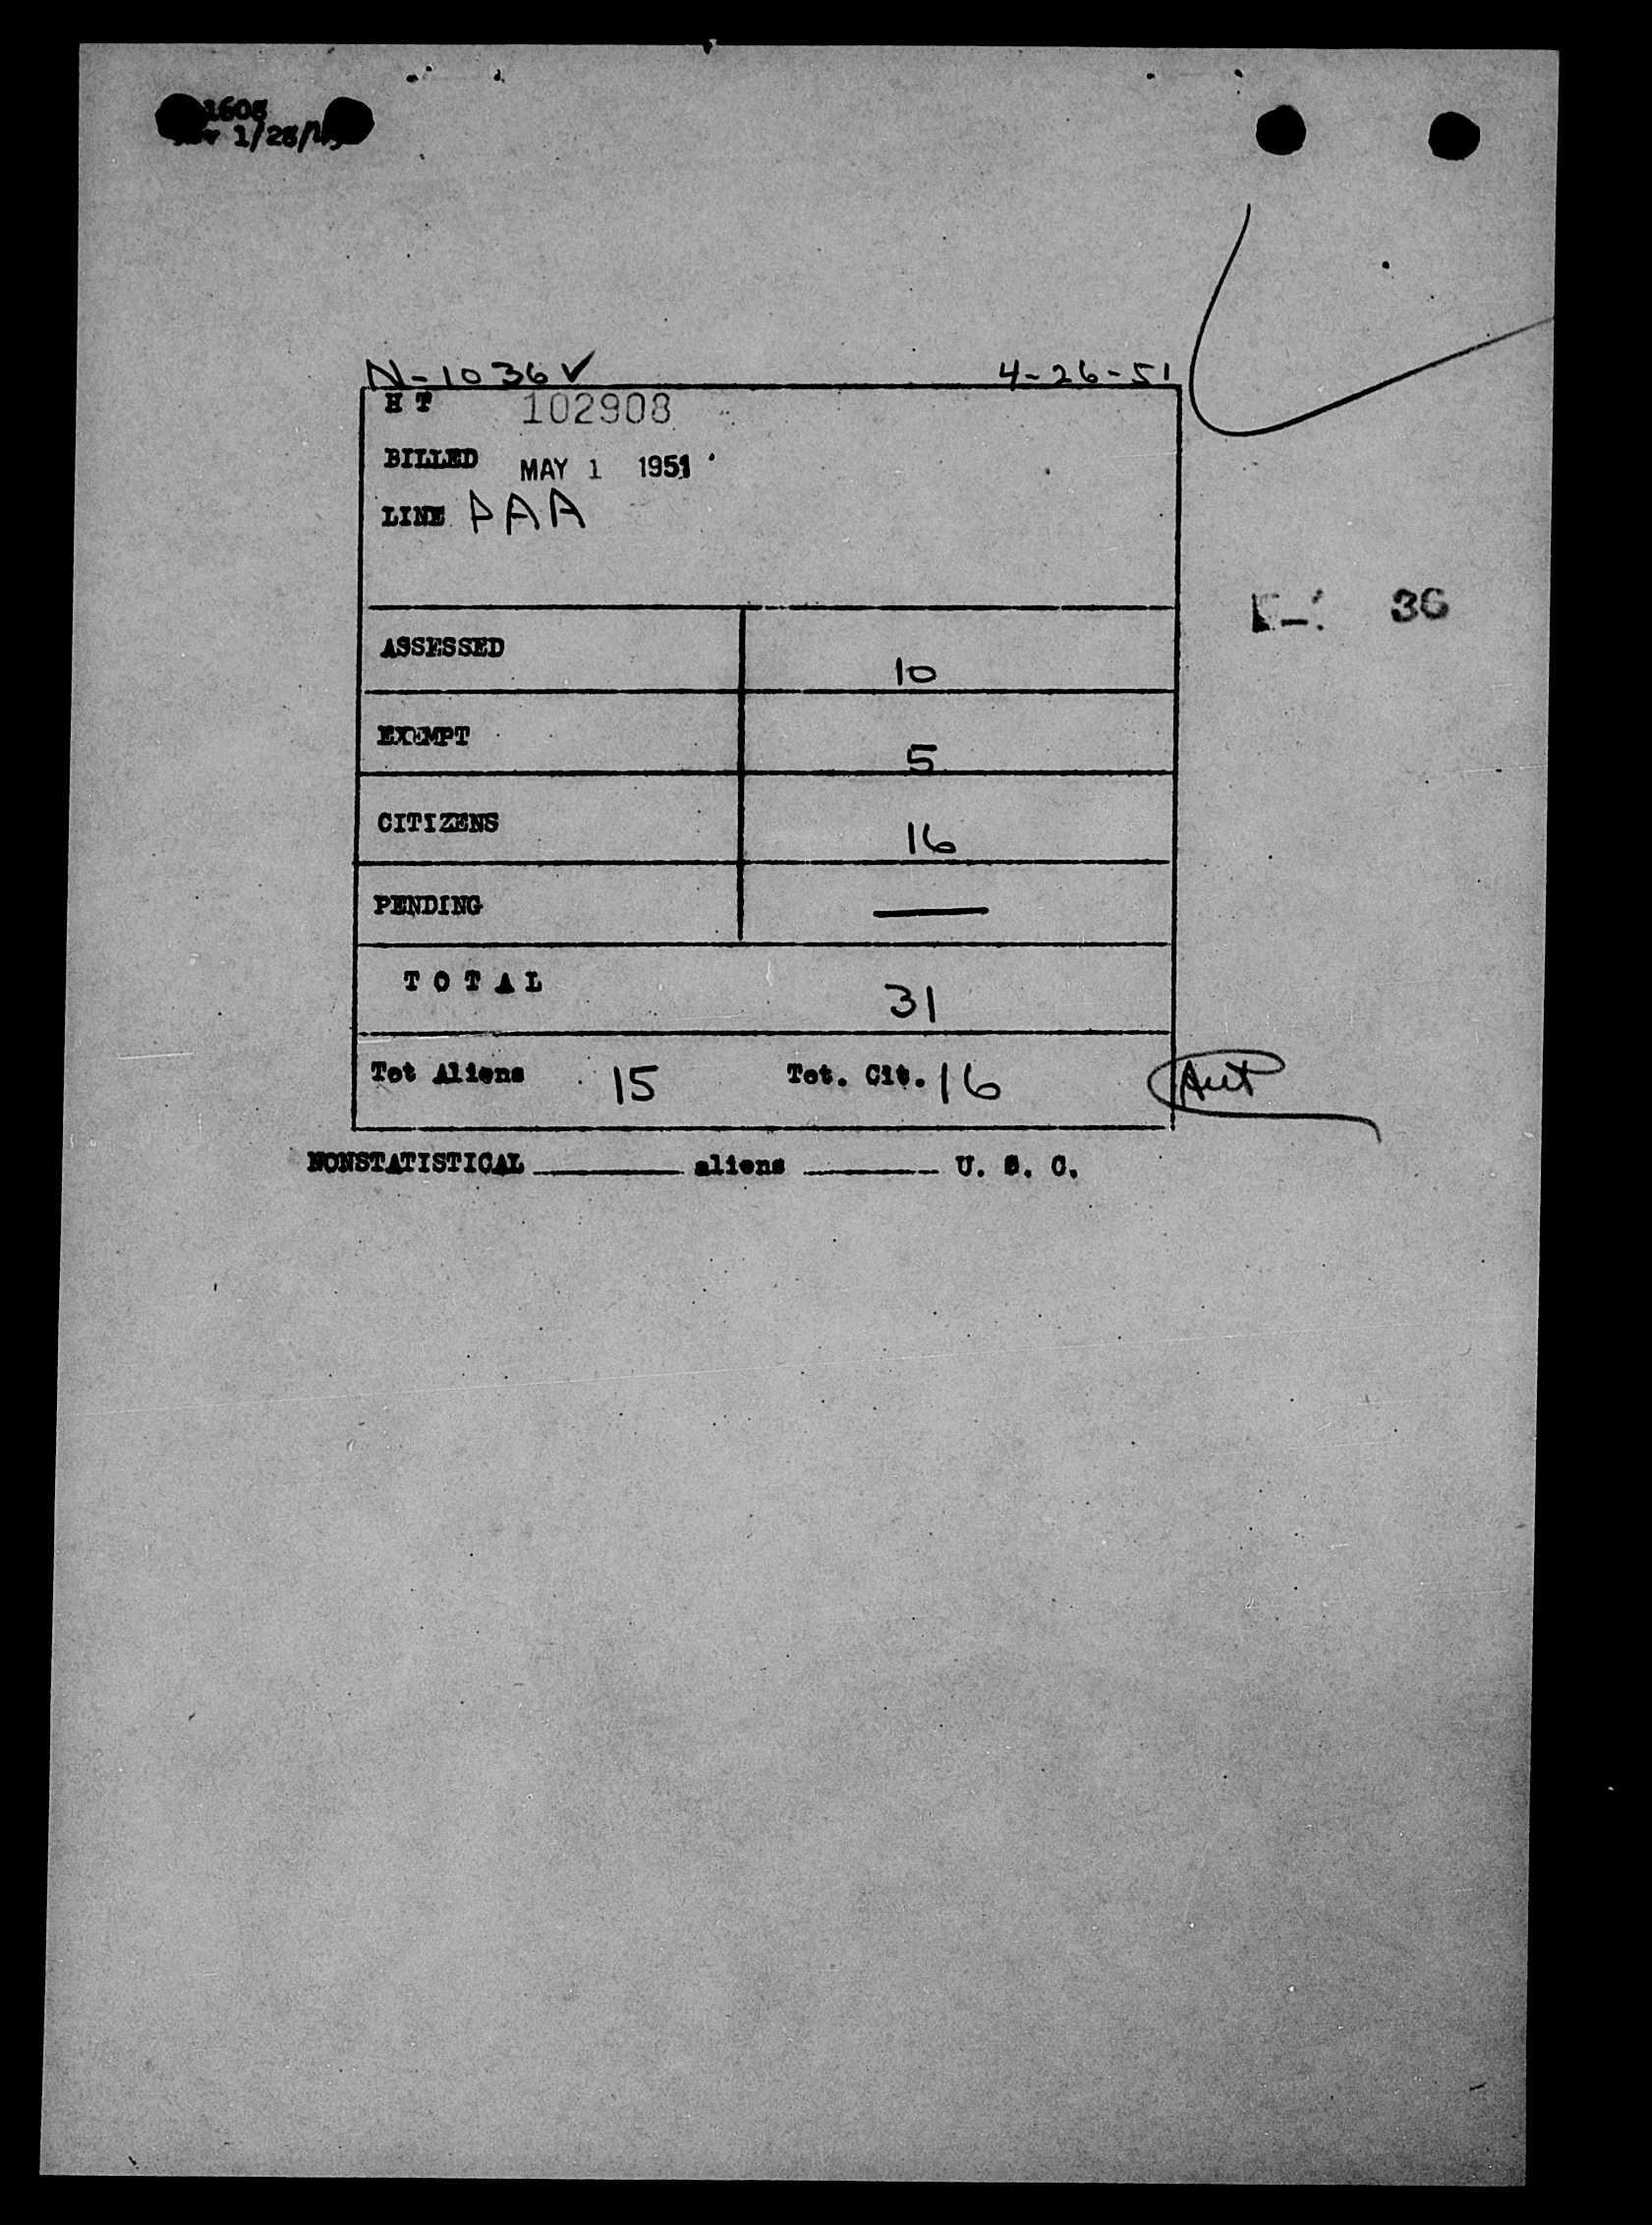 1608
1/28/49
N-1036V 4-26-51
H T 102908
BILLED MAY 1 1951
LINE PAA
36
ASSESSED 10
EXEMPT 5
CITIZENS 16
PENDING —
T O T A L 31
Tot Aliens 15 Tot. Cit. 16
NONSTATISTICAL ______ aliens ______ U. S. C.